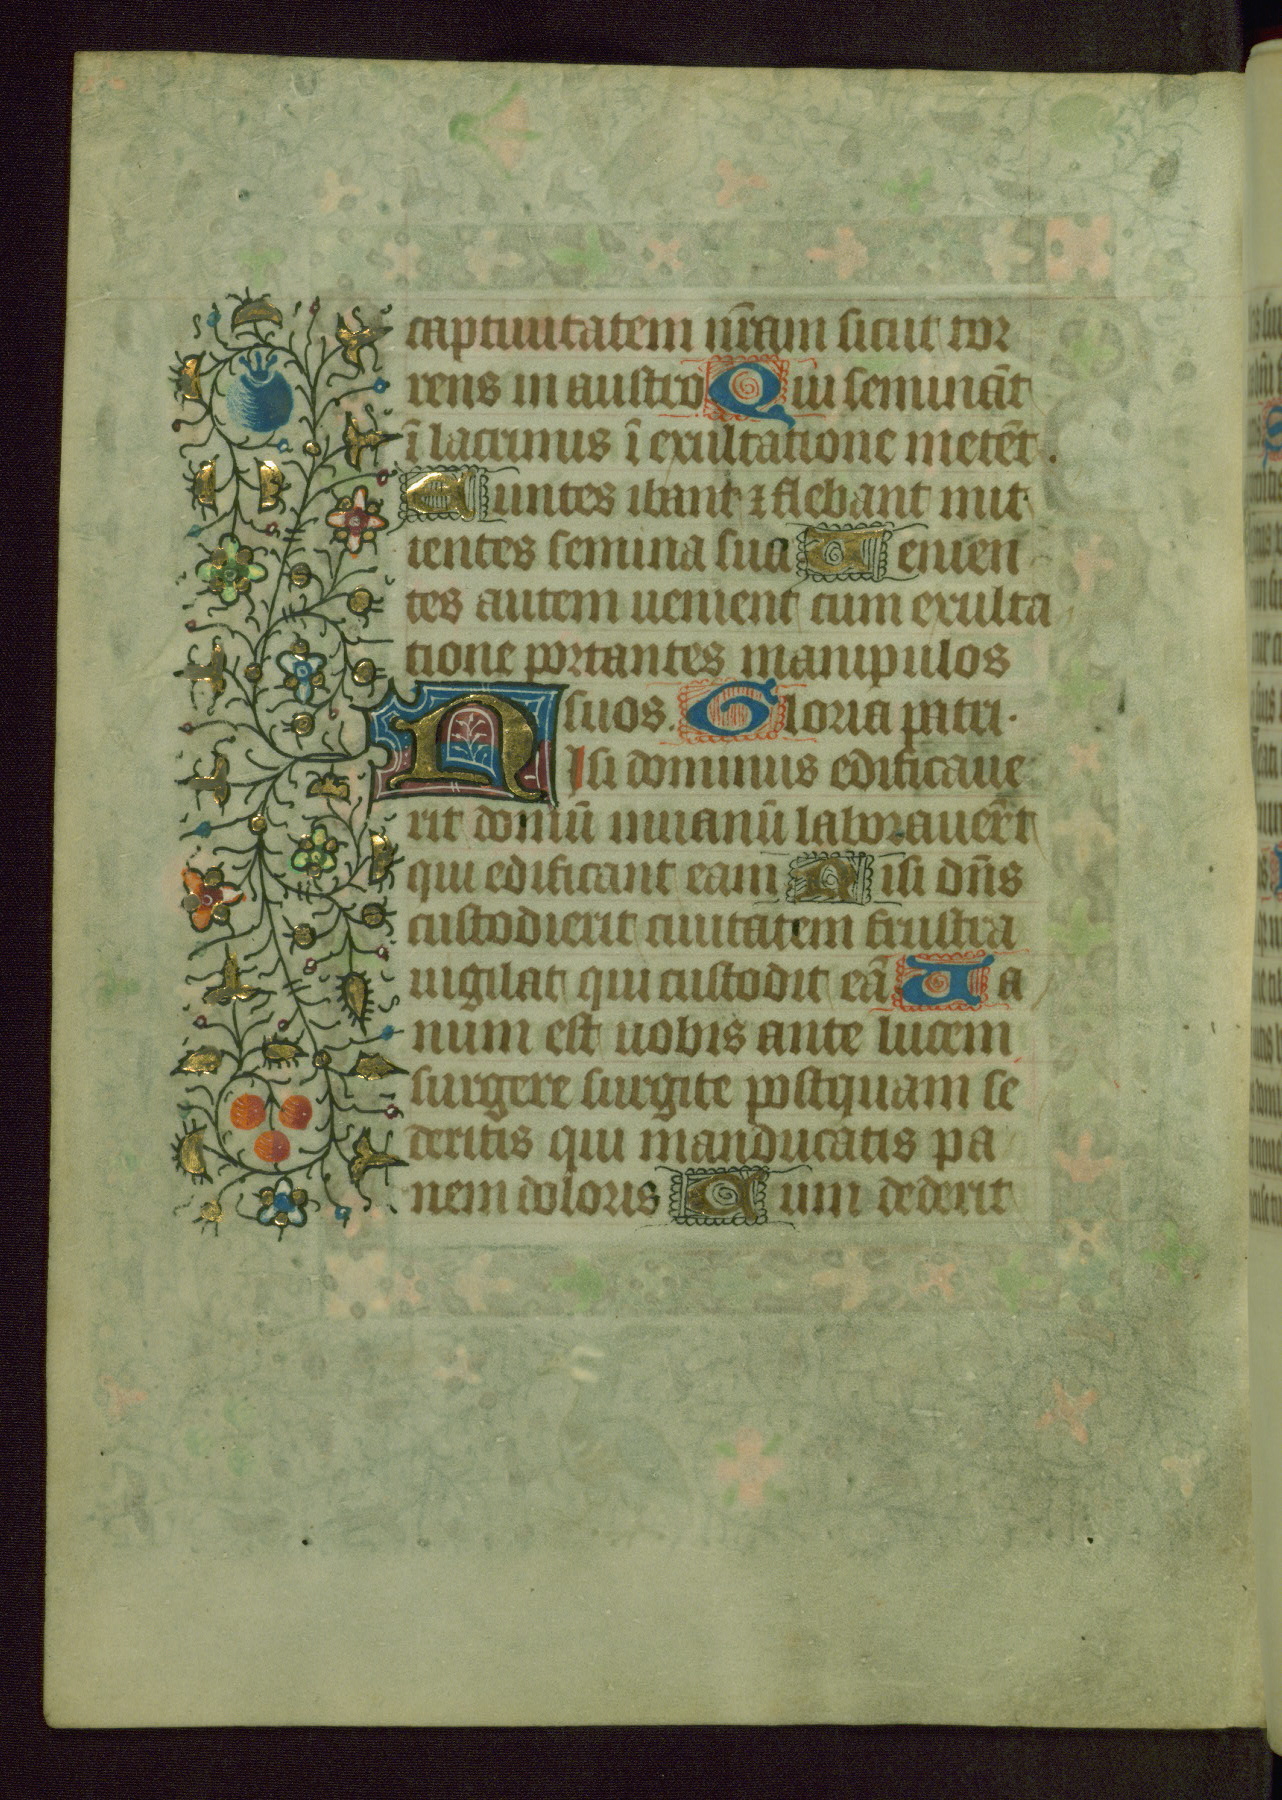 captiuitatem nr̄am sicut tor
rens in austro Qui semināt
ī lacrimis ī exultatione metēt.
Euntes ibant ⁊ flebant mit
tentes semina sua Uenien
tes autem uenient cum exulta
tione portantes manipulos
suos. Gloria patri.
Nisi dominus edificaue
rit domū inuanū laborauer̄t
qui edificant eam Nisi dn̄s
custodierit ciuitatem frustra
uigilat qui custodit eā Ua
num est uobis ante lucem
surgere surgite postquam se
deritis qui manducatis pa
nem doloris Cum dederit